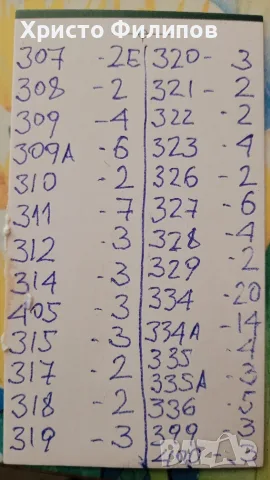 Христо Филипов
307 -2E
308 -2
309 -4
309A -6
310 -2
311 -7
312 -3
314 -3
405 -3
315 -3
317 -2
318 -2
319 -3
320- 3
321- 2
322 -2
323 -4
326 -2
327 -6
328 -4
329 -2
334 -20
334A -14
335 -4
335A -3
336 -5
399 -3